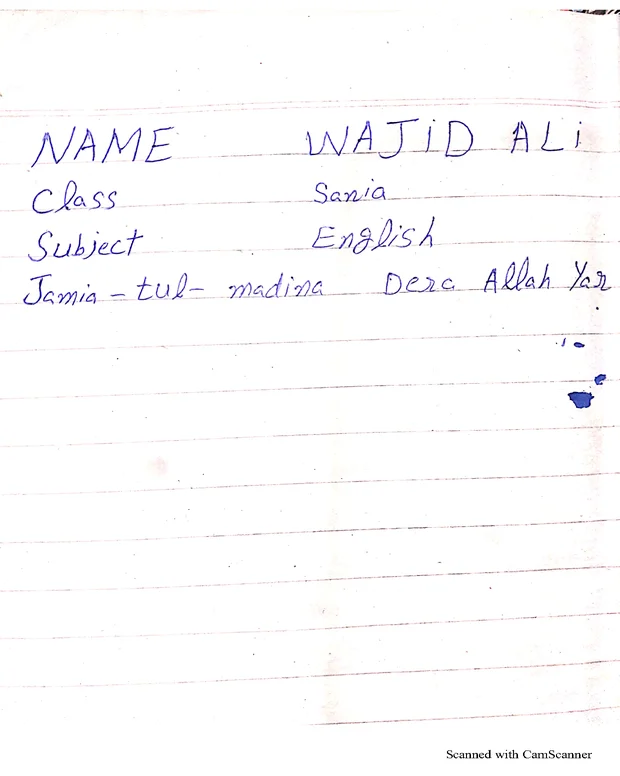 NAME WAJiD ALi
Class Sania
Subject English
Jamia-tul-madina Dera Allah Yar
Scanned with CamScanner